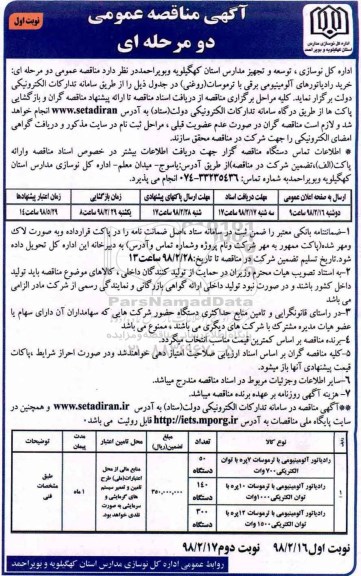 آگهی مناقصه عمومی
دو مرحله ای
نوبت اول
اداره کل نوسازی مدارس
استان کهگیلویه و بویراحمد
اداره کل نوسازی ، توسعه و تجهیز مدارس استان کهگیلویه وبویراحمددر نظر دارد مناقصه عمومی دو مرحله ای:
خرید رادیاتورهای آلومینیومی برقی با ترموستات(روغنی) در جدول ذیل را از طریق سامانه تدارکات الکترونیکی
دولت برگزار نماید. کلیه مراحل برگزاری مناقصه از دریافت اسناد مناقصه تا ارائه پیشنهاد مناقصه گران و بازگشایی
پاکت ها از طریق درگاه سامانه تدارکات الکترونیکی دولت(ستاد) به آدرس www.setadiran.ir انجام خواهد
شد و لازم است مناقصه گران در صورت عدم عضویت قبلی ، مراحل ثبت نام در سایت مذکور و دریافت گواهی
امضای الکترونیکی را جهت شرکت در مناقصه محقق سازند.
* اطلاعات تماس دستگاه مناقصه گزار جهت دریافت اطلاعات بیشتر در خصوص اسناد مناقصه وارائه
پاکت(الف)،تضمین شرکت در مناقصه)از طریق آدرس:یاسوج- میدان معلم- اداره کل نوسازی مدارس استان
کهگیلویه وبویراحمدبه شماره تماس: ۳۳۲۳۵۴۳۶-۰۷۴ انجام می پذیرد.
ارسال به صفحه اعلان عمومی | مهلت دریافت اسناد | مهلت ارسال پاکتهای پیشنهادی | زمان بازگشایی | زمان اعتبار پیشنهادها
دوشنبه ۹۸/۲/۱۶ ساعت۹ | سه شنبه ۹۸/۲/۱۷ ساعت ۱۷ | شنبه ۹۸/۲/۲۸ ساعت ۱۷ | یکشنبه ۹۸/۲/۲۹ ساعت ۸ | ۹۸/۵/۲۹ ساعت۱۴
۱-ضمانتنامه بانکی معتبر را ضمن ثبت در سامانه ستاد ،اصل ضمانت نامه را در پاکت قرارداده وبه صورت لاک
ومهر شده(پاکت ممهور به مهر شرکت ونام پروژه وشماره تماس وآدرس) به دبیرخانه این اداره کل تحویل داده
شود.تاریخ تسلیم تضمین شرکت در مناقصه تا تاریخ:۹۸/۲/۲۸ ساعت ۱۳
۲-به استناد تصویب هیات محترم وزیران در حمایت از تولید کنندگان داخلی ، کالاهای موضوع مناقصه باید تولید
داخل کشور باشند و در صورت نبود تولید داخلی ارائه گواهی بازرگانی و نمایندگی رسمی از شرکت مادر الزامی
می باشد.
۳-در راستای قانونگرایی و تامین منابع حداکثری دستگاه حضور شرکت هایی که سهامداران آن دارای سهام یا
عضو هیات مدیره مشترک با شرکت های دیگری می باشند ، ممنوع می باشد
۴-برنده مناقصه بر اساس کمترین قیمت مناسب انتخاب میگردد.
۵-کلیه مناقصه گران بر اساس اسناد ارزیابی صلاحیت امتیاز دهی خواهندشد ودر صورت احراز شرایط ،پاکات
قیمت پیشنهادی آنها باز میشود.
۶-سایر اطلاعات وجزئیات مربوط در اسناد مناقصه مندرج میباشد.
۷- هزینه آگهی روزنامه بر عهده برنده مناقصه میباشد.
*آگهی مناقصه در سامانه تدارکات الکترونیکی دولت(ستاد) به آدرس www.setadiran.ir و همچنین در
سایت پایگاه ملی مناقصات به آدرس http://iets.mporg.ir قابل رویت می باشد
نوع کالا | تعداد | مبلغ تضمین(ریال) | محل تامین اعتبار | مدت پیمان | توضیحات
۱ | رادیاتور آلومینیومی با ترموستات ۷پره با توان الکتریکی۷۰۰ وات | ۵۰ دستگاه
رادیاتور آلومینیومی با ترموستات ۱۰پره با توان الکتریکی۱۰۰۰ وات | ۱۴۰ دستگاه
رادیاتور آلومینیومی با ترموستات ۱۲پره با توان الکتریکی ۱۵۰۰ وات | ۳۰۰ دستگاه
۳۵۰,۰۰۰,۰۰۰ | منابع مالی از محل اعتبارات(ملی) طرح تامین و تعمیر سیستم های گرمایشی و سرمایشی به صورت نقدی خواهد بود. | ۱ ماه | مشخصات طبق فنی
نوبت اول۹۸/۲/۱۶ نوبت دوم ۹۸/۲/۱۷
روابط عمومی اداره کل نوسازی مدارس استان کهگیلویه و بویراحمد
ParsNamadData